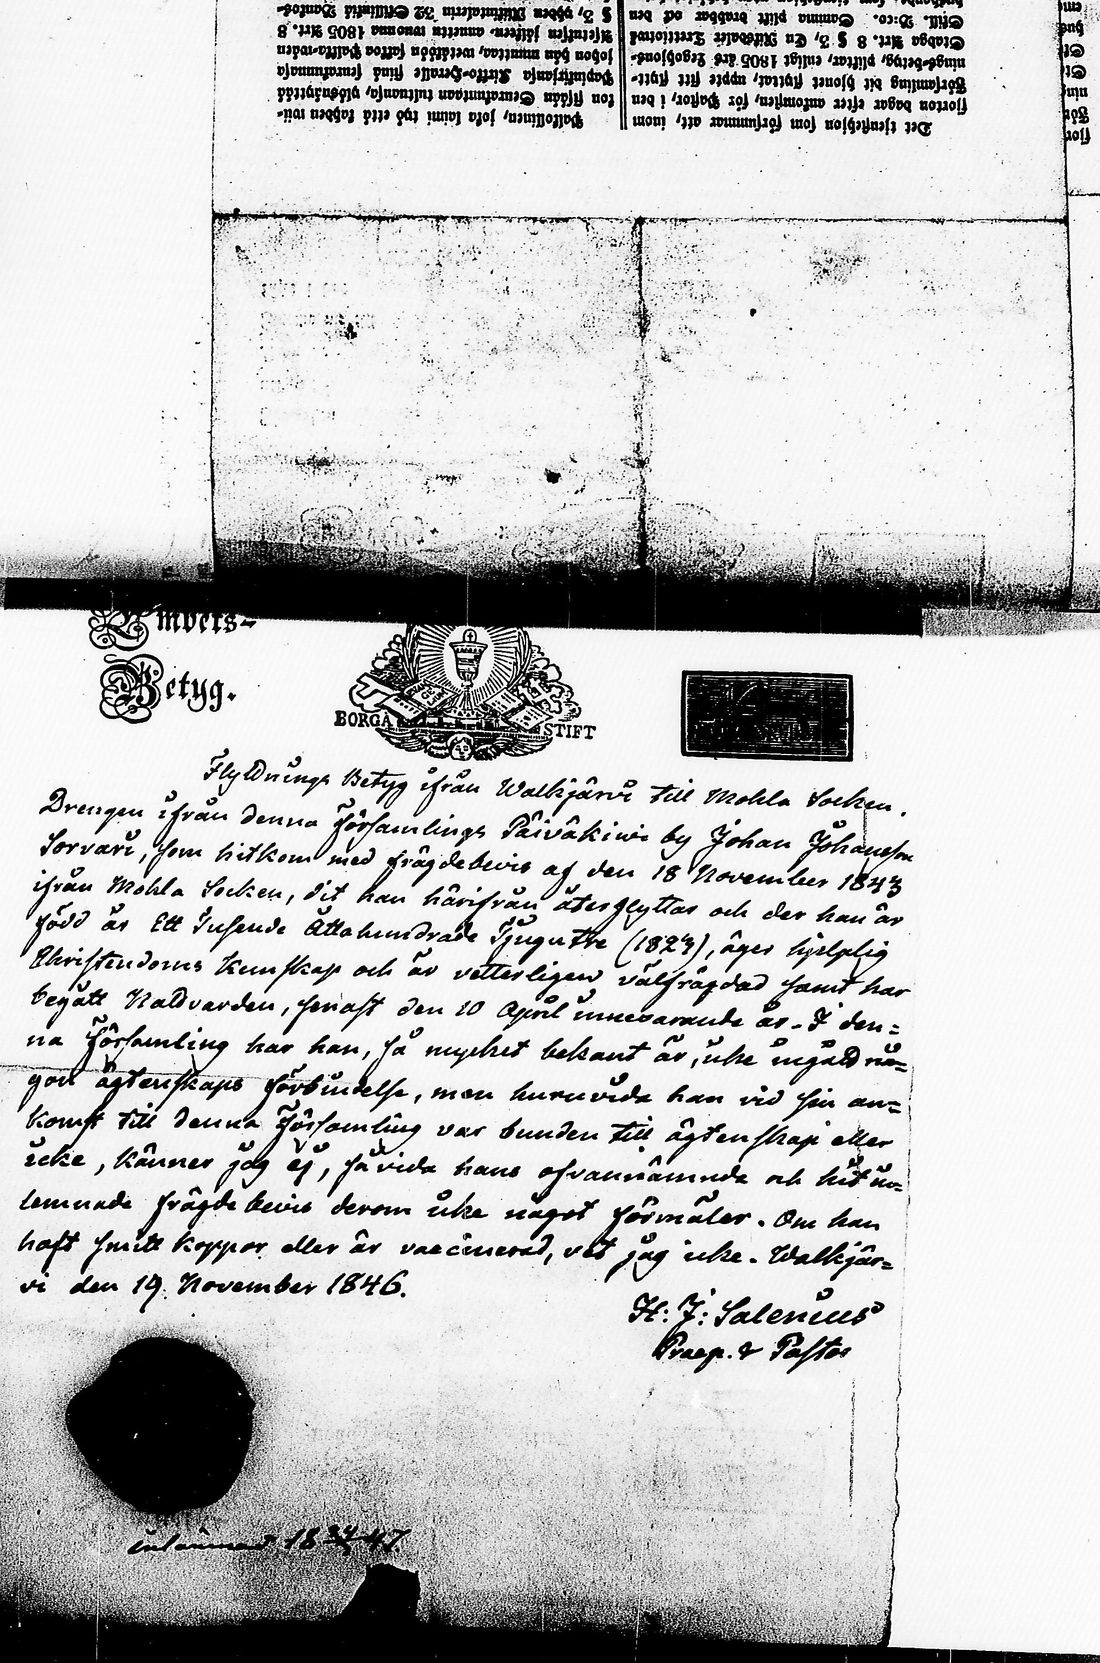 Det tjensthjon som försummar att, inom
fjorton dagar efter ankomsten, för Pastor, i den
Församling dit hjonet flyttat, uppte sitt flytt-
nings-betyg, pliktar, enligt 1805 års Legohjons-
Stadga Art. 8 § 3, En Riksdaler Tretiotwå
Skill. B:co. Samma plikt drabbar ock den
Palkollinen, joka laimi lyö että kahden wii-
kon sisään Seurakuntaan tultuansa, ylösnäyttää
Papinkirjansa Kirkko-Herralle siinä seurakunnasa
johon hän muuttaa, wetää
Asetuksen jälkeen annettu wuonna 1805 Art. 8
§ 3, yhden Riksitalerin 32 Skillinkiä Bankos-
Embets-
Betyg.
BORGÅ STIFT
Flyttnings Betyg ifrån Walkjärvi till Mohla Socken.
Drengen ifrån denna Församlings Päiväkivi by Johan Johansson
Sorvari, som hitkom med frägdebevis af den 18 November 1843
ifrån Mohla Socken, dit han härifrån återflyttar och der han är
född år Ett Tusende Åttahundrade Tjugutre (1823), äger hjelplig
Christendoms Kunskap och är vetterligen välfrägdad samt har
begått Nattvarden, senast den 10 April innevarande år. I den=
na Församling har han, så mycket bekant är, icke ingått nå=
gon ägtenskaps förbindelse, men huruvida han vid sin an=
komst till denna Församling var bunden till ägtenskap eller
icke, känner jag ej, såvida hans ofvannämnde och hit in=
lemnade frägdebevis derom icke något förmäler. Om han
haft smitt koppor eller är vaccinerad, vet jag icke. Walkjär=
vi den 19 November 1846.
H: J: Salenius
Praep. & Pastor
inlämnad 18 47.